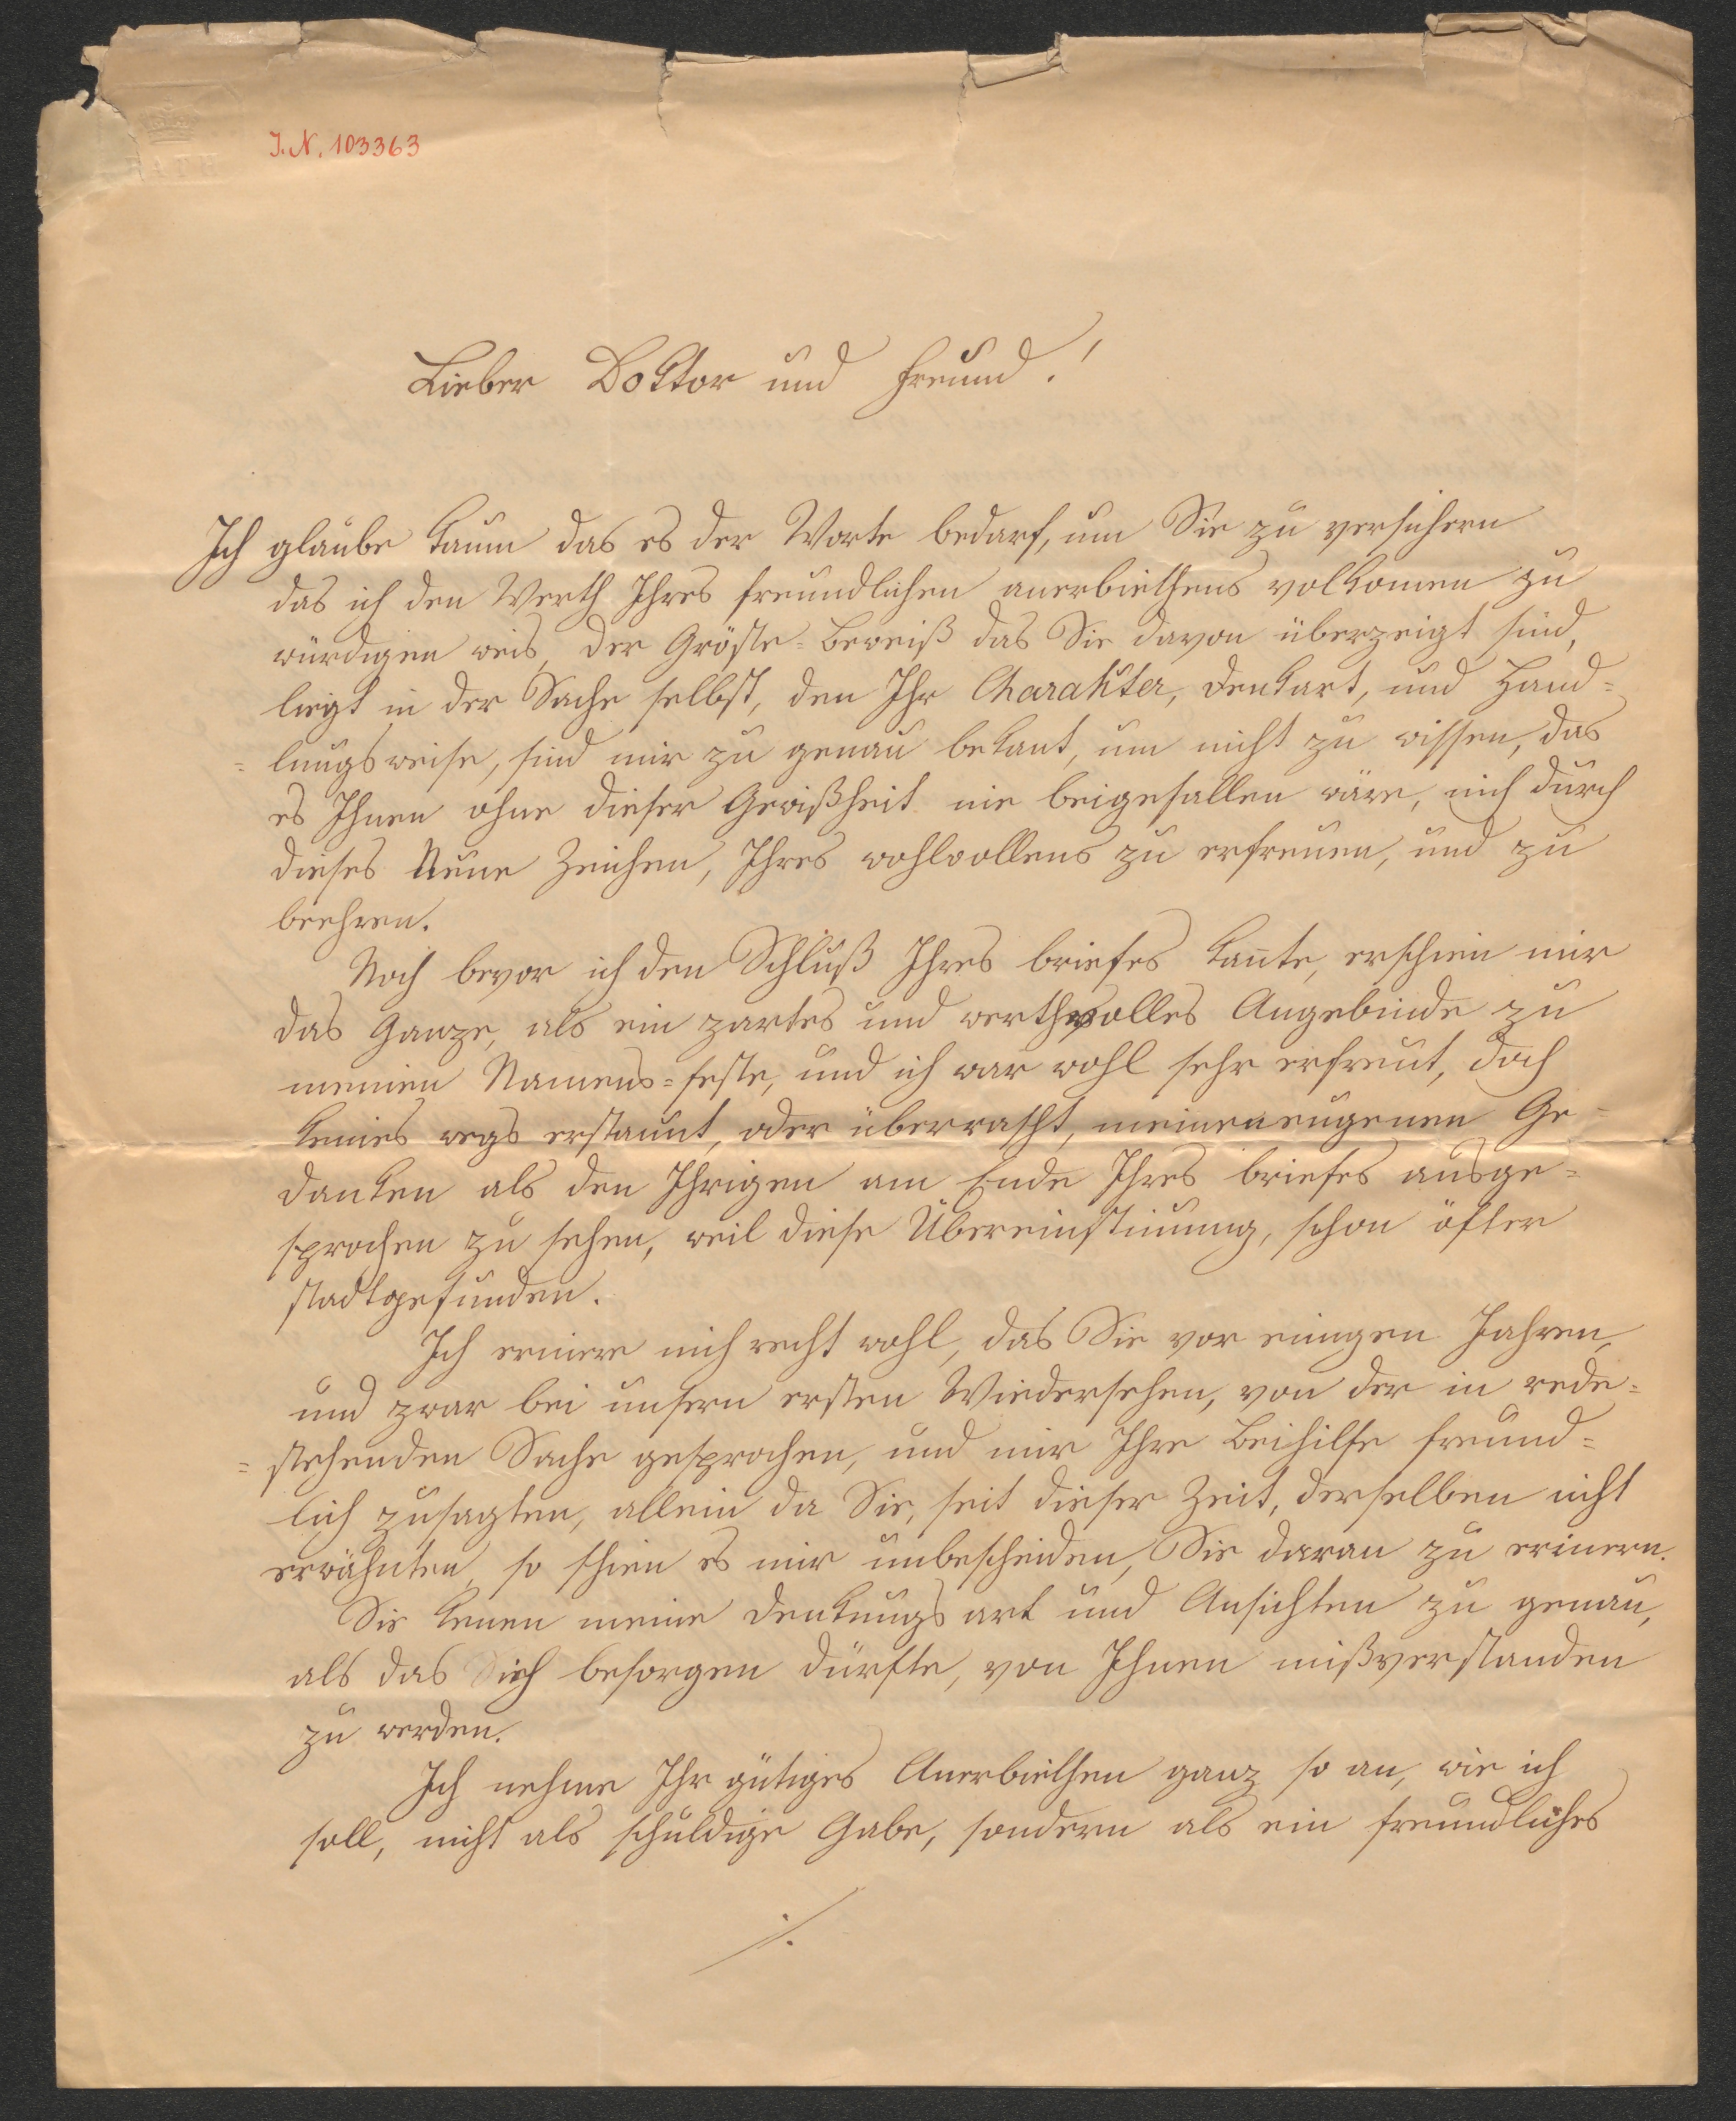 J.N. 103363
Lieber Doktor und Freund!
Ich glaube kaum das es der Worte bedarf, um Sie zu versichern
das ich den Werth Ihres freundlichen anerbiethens volkomen zu
würdigen weis, der Gröste-Beweiß das Sie davon überzeigt sind,
liegt in der Sache selbst, den Ihr Charakter, Denkart, und Hand=
=lungsweise, sind mir zu genau bekant, um nicht zu wissen, das
es Ihnen ohne dieser Gewißheit nie beigefallen wäre, mich durch
dieses Neue Zeichen, Ihres wohlwollens zu erfreuen, und zu
beehren.
Noch bevor ich den Schluß Ihres briefes kannte, erschien mir
das Ganze, als ein zartes und werthvolles Angebinde zu
meinen Namens=feste, und ich war wohl sehr erfreut, doch
keines wegs erstaunt, oder überrascht, meinen eugenen Ge=
danken als den Ihrigen am Ende Ihres briefes ausge=
sprochen zu sehen, weil diese Übereinstimung, schon öfter
stadtgefunden.
Ich erinere mich recht wohl, das Sie vor einigen Jahren,
und zwar bei unsern ersten Wiedersehen, von der in rede=
=stehenden Sache gesprochen, und mir Ihre Beihilfe freund=
lich zusagten, allein da Sie, seit dieser Zeit, derselben nicht
erwähnten, so schien es mir unbescheiden, Sie daran zu erinern.
Sie kenen meine Denkungs art und Ansichten zu genau,
als das ich besorgen dürfte, von Ihnen mißverstanden
zu werden.
Ich nehme Ihr gütiges Anerbiethen ganz so an, wie ich
soll, nicht als schuldige Gabe, sondern als ein freundliches
./.